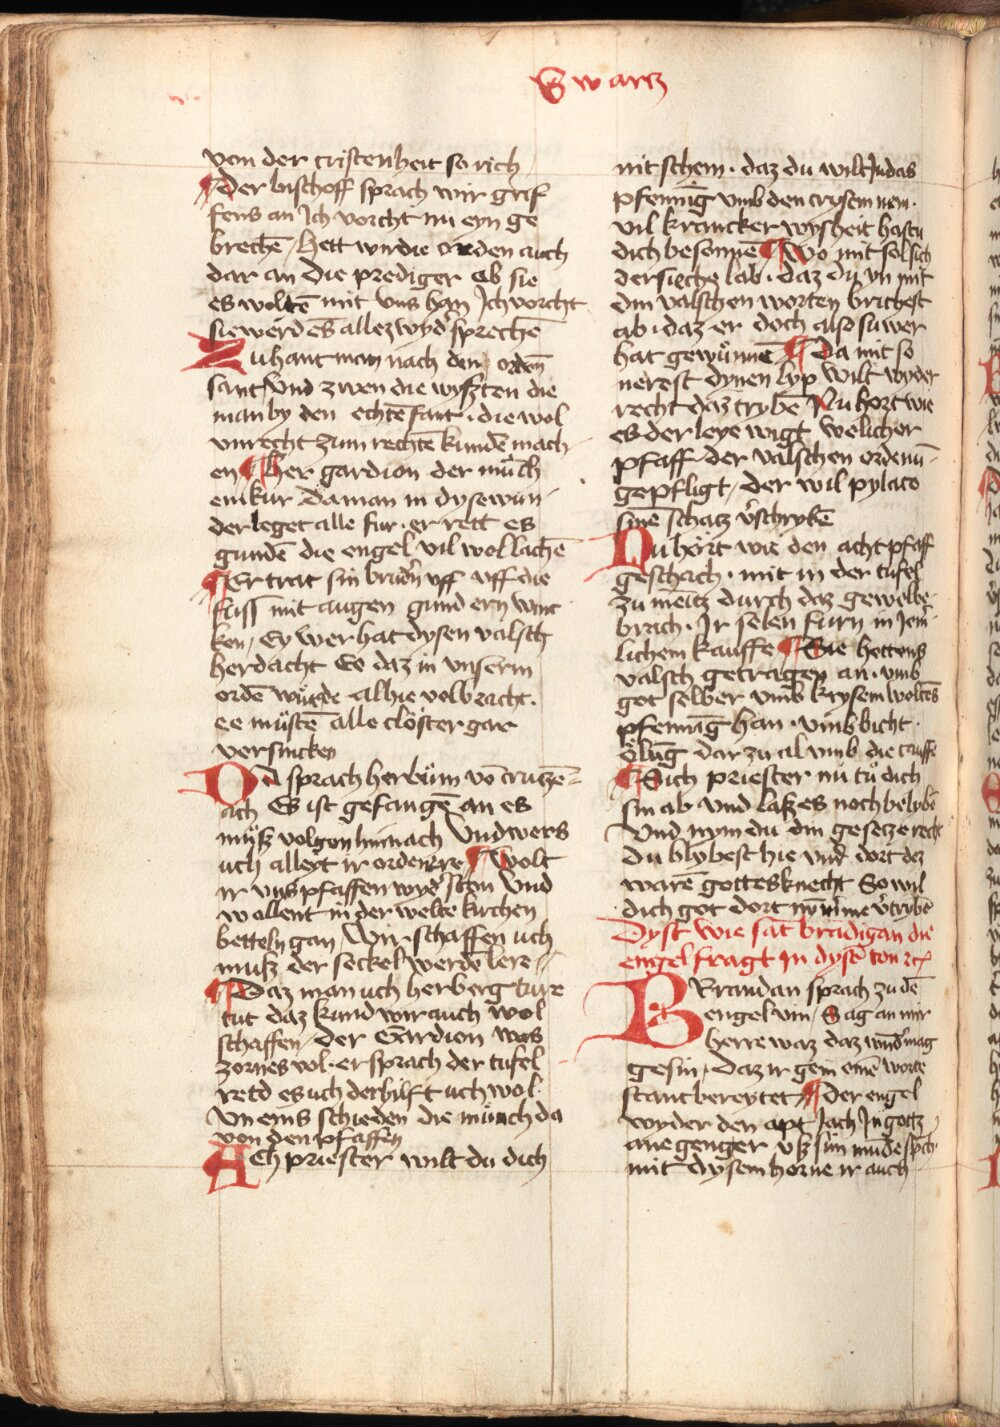 Swartz
von der cristenheit so rich
Der bischoff sprach wir grif
fens an Ich vorcht nu eyn ge
brechē / Hett wir die orden auch
dar an Die prediger Ob sie
es woltē mit vns han Ich vorcht
sie werdēs allez wyd' sprechē
Zu hant man nach den ordēn
sant / Vnd zwen die wyszten die
man by den echtē fant · die wol
vnrecht zum rechtē kundē mach
en Her gardion der mu̇ch
ein kur Da man in dyse wun
der leget alle fur · er rett es
gundē die engel vil wol lachē
Er trat sin brud'n vff vff die
fuss mit augen gund ern winc
ken / Ey wer hat dysen valsch
herdacht Ee daz in vnserm
ordē würde alhie volbracht ·
ee müstē alle clöster gar
versincken
Do sprach her
ach Es ist gefangē an es
müsz volgon hin nach Vnd wers
uch alleyt ir orden ere Wolt
ir vns pfaffen wyd' sten Vnd
wollent in der welte kirchen
betteln gan / Wir schaffen uch
musz der seckel werdē lere
Daz man uch herberg ture
tut daz kund wir auch wol
schaffen / der Gardion was
zornes vol · er sprach der tufel
retd es uch der hilft uch wol ·
Vn eins schieden die münch da
von den pfaffen
Ach priester wilt du dich
nit schem · daz du wilt Judas
pfennīg vmb den crysem nem ·
vil krancker wysheit hastu
dich besonnē Wo mit sol sich
der sieche lab · daz du yn mit
din valschen worten brichest
ab · daz er doch also suwer
hat gewünnē Da mit so
nerest dynen lyp wilt wyder
recht daz trybē Nu hort wie
es der leye wigt welicher
pfaff der valschen ordenū
gepfligt / der wil pylato
sinē schatz v'schrybē
Nu hört wie den acht pfaff
geschach · mit in der tufel
zu meītz durch daz gewelbe
brach · Ir selen furn in Jem'
lichem kauffe Sie hettens
valsch getragen an · vmb
got selber vmb krysem woltēs
pfennīg han · vmb bicht ·
ölūg dar zu al vmb die tauffe
Sich priester nu tu̇ dich
sin ab vnd lasz es noch belybē
Vnd nym du din gesetze recht
Du blybest hie vnd dort dez
warē gottes knecht So wil
dich got dort nȳmme v'trybē
Dyst wie sāt brādigan die
engel fragt In dysē ton
BRandan sprach zu dē
engel vin / Sag an mir
herre waz daz wund' mag
gesin / Daz ir gein einē worte
stant bereytet Der engel
wyder den apt Jach In gottz
ane genger vsz sim munde spch
mit dysem horne ir auch